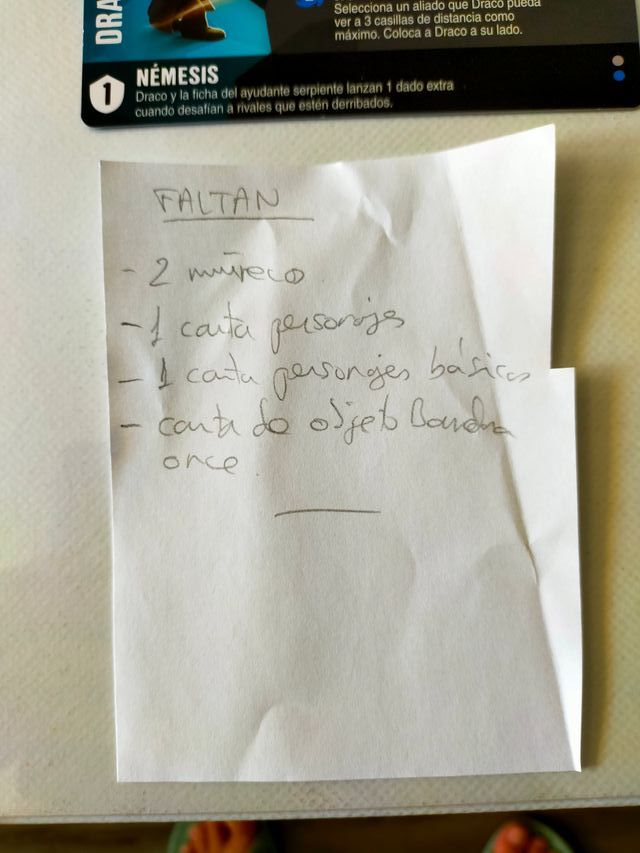 DRA
Selecciona un aliado que Draco pueda
ver a 3 casillas de distancia como
máximo. Coloca a Draco a su lado.
1
NÉMESIS
Draco y la ficha del ayudante serpiente lanzan 1 dado extra
cuando desafían a rivales que estén derribados.
FALTAN
- 2 muñeco
- 1 carta personajes
- 1 carta personajes básicos
- carta de objeto
once.